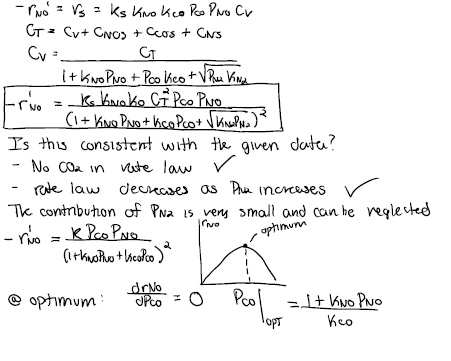 - r_NO' = r_S = k_S K_NO K_CO P_CO P_NO C_V
C_T = C_V + C_NO·S + C_CO·S + C_N·S
C_V = C_T / (1 + K_NO P_NO + P_CO K_CO + √(P_N2 K_N2))
- r'_NO = k_S K_NO K_CO C_T^2 P_CO P_NO / (1 + K_NO P_NO + K_CO P_CO + √(K_N2 P_N2))^2
Is this consistent with the given data?
- No CO2 in rate law ✓
- rate law decreases as P_N2 increases ✓
The contribution of P_N2 is very small and can be neglected
- r'_NO = k P_CO P_NO / (1 + K_NO P_NO + K_CO P_CO)^2
r_NO
optimum
@ optimum: dr_NO / dP_CO = 0 P_CO |_OPT = (1 + K_NO P_NO) / K_CO